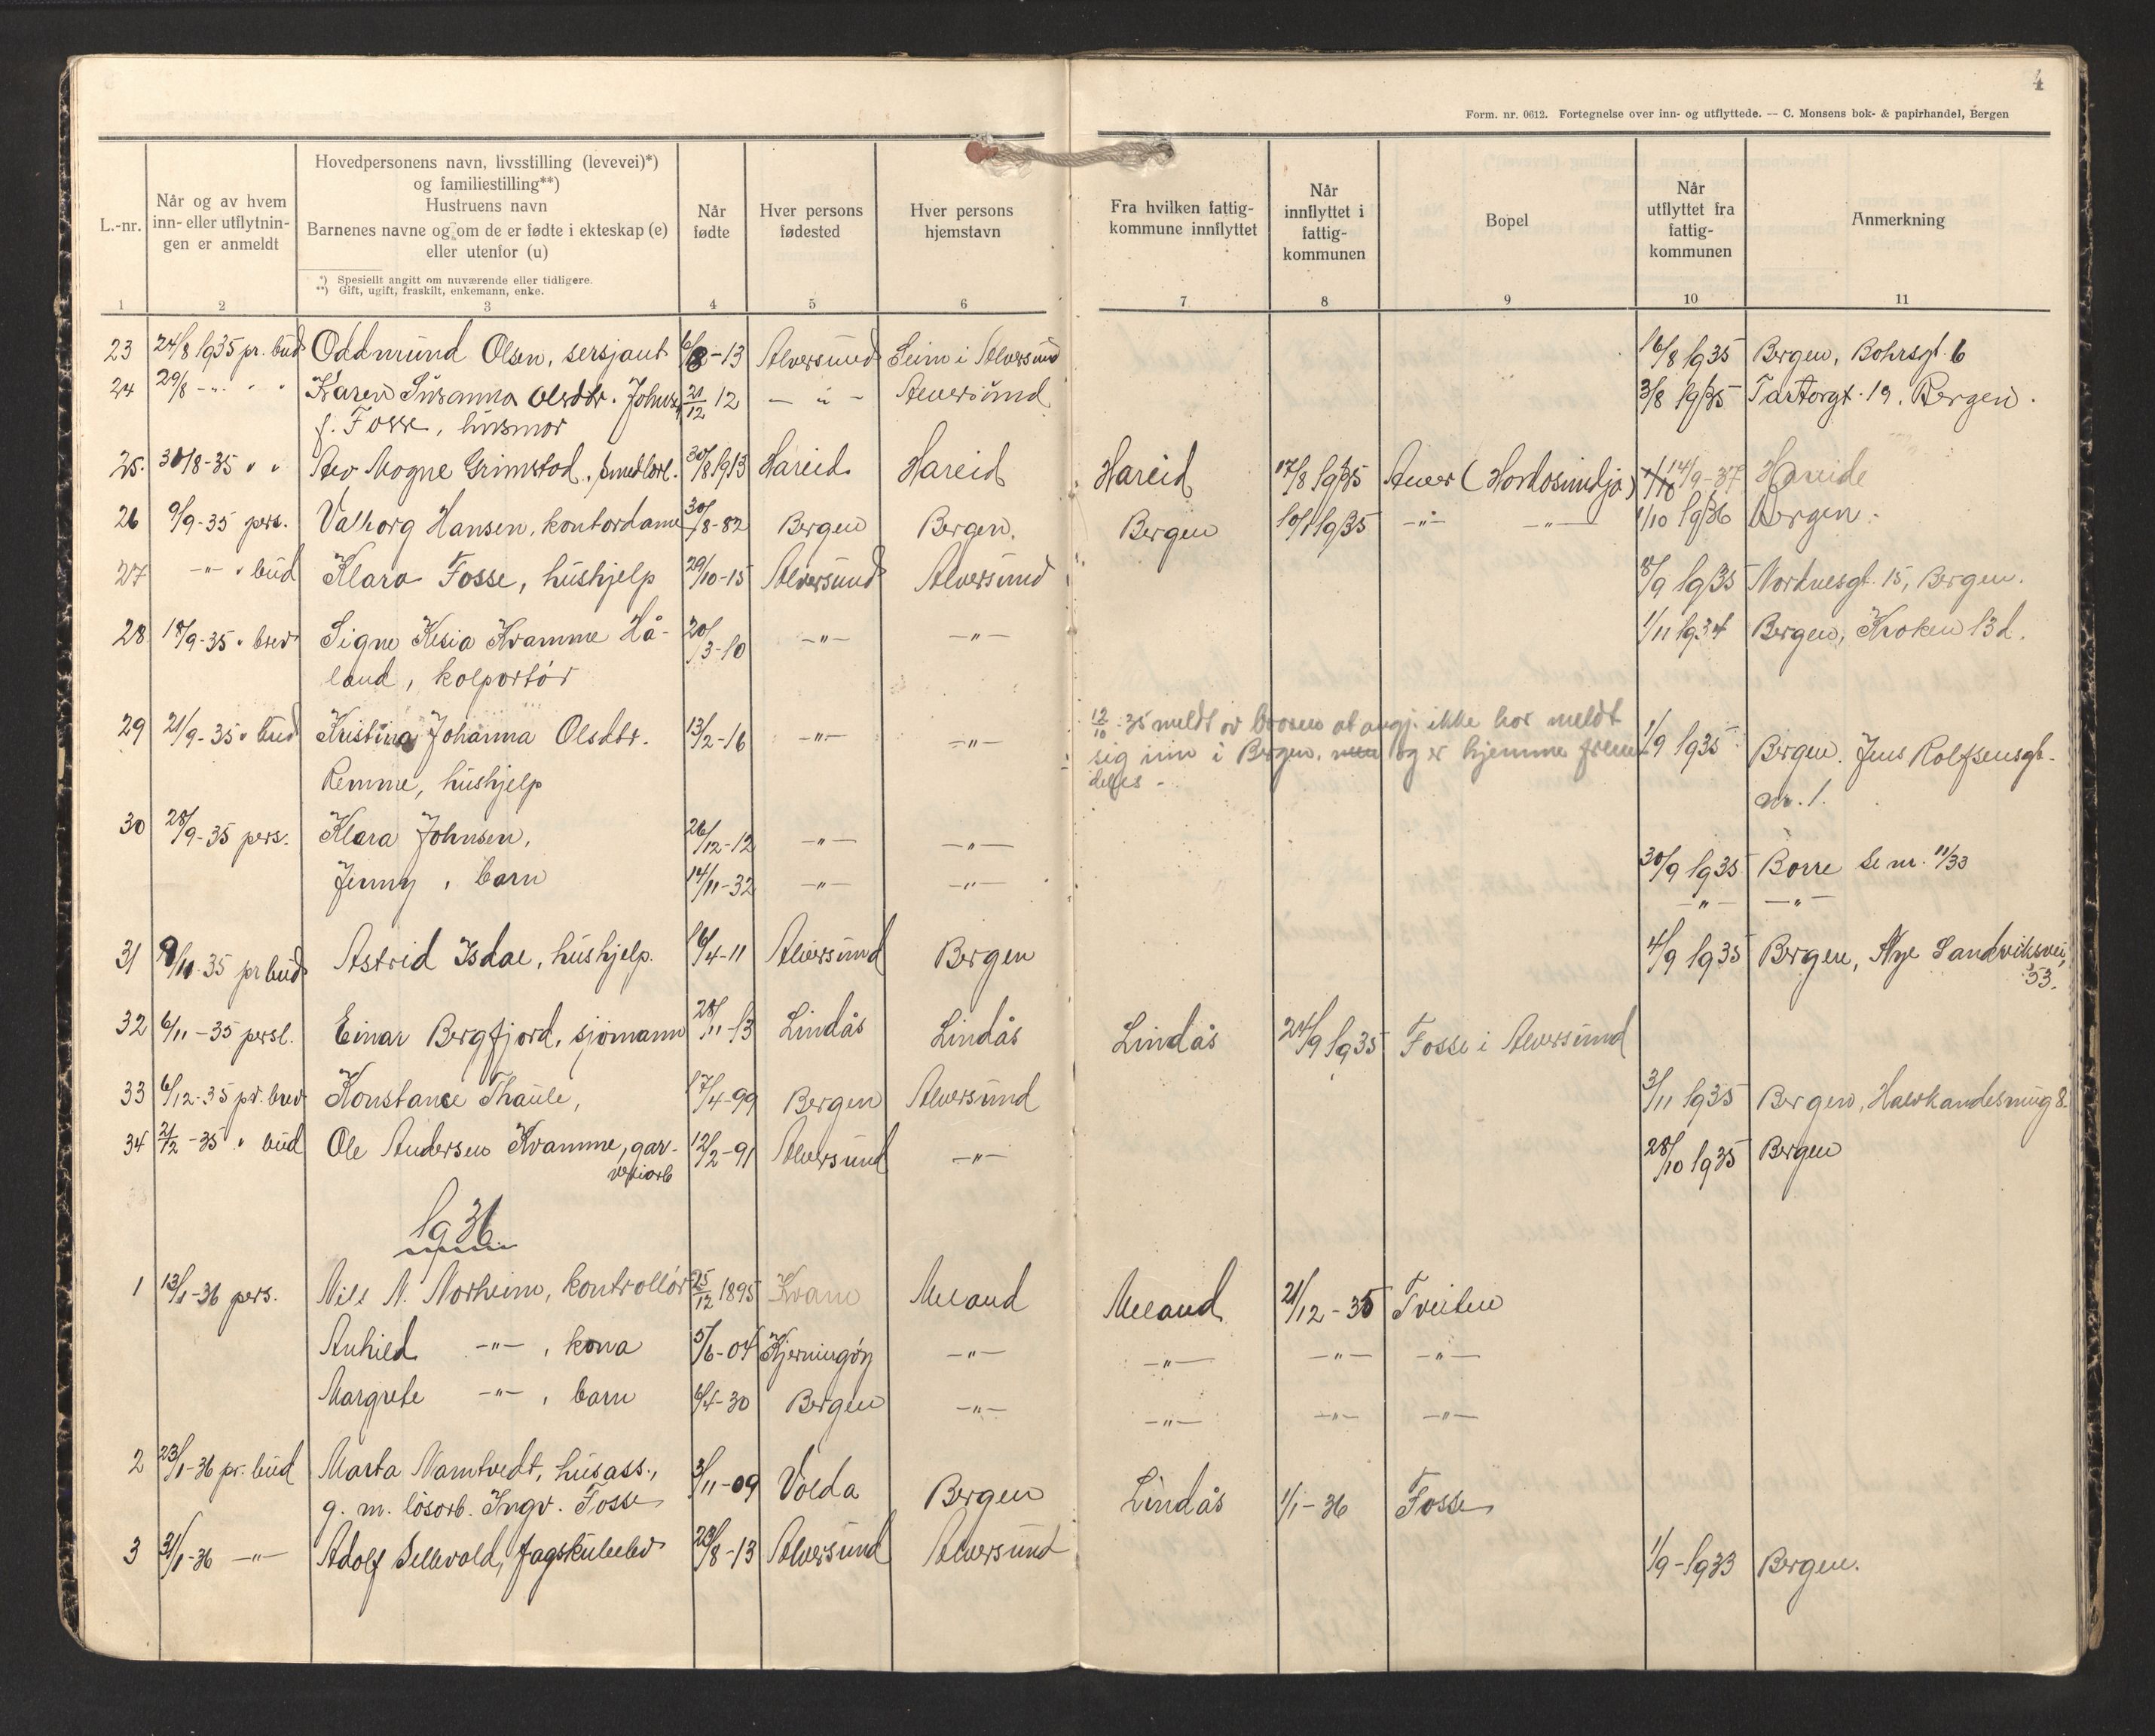 4
Form. nr. 0612. Fortegnelse over inn- og utflyttede. — C. Monsens bok- & papirhandel, Bergen
L.-nr.
Når og av hvem inn- eller utflytnin-gen er anmeldt
Hovedpersonens navn, livsstilling (levevei)*)
og familiestilling**)
Hustruens navn
Barnenes navne og om de er fødte i ekteskap (e)
eller utenfor (u)
*) Spesiellt angitt om nuværende eller tidligere.
**) Gift, ugift, fraskilt, enkemann, enke.
Når fødte
Hver persons fødested
Hver persons hjemstavn
Fra hvilken fattig-kommune innflyttet
Når innflyttet i fattig-kommunen
Bopel
Når utflyttet fra fattig-kommunen
Anmerkning
1 2 3 4 5 6 7 8 9 10 11
23 24/8 1935 pr. bud Oddmund Olsen, sersjant 6/8-13 Alversund Seim i Alversund 16/8 1935 Bergen, Bohrsgt. 6
24 29/8 -"- " " Karen Susanna Olsdtr. Johnsen 21/12 12 -"- Alversund 3/8 1935 Bergen.
f. Fosse, husmor
25. 30/8-35 " " Mogne Grimstad, 30/8 1913 Hareid Hareid Hareid 17/8 1935 Alver 14/9-37 Hareide
26 9/9-35 pers. Valborg Hansen, kontordame 30/8-82 Bergen Bergen. Bergen 1935 -"- -"- 1/10 1936 Bergen.
27 -"- " bud Klara Fosse, hushjelp 29/10-15 Alversund Alversund 8/9 1935 Nordnesgt. 15, Bergen.
28 18/9-35 " brev Signe Kesia Kvamme Hå- 20/3-10 -"- -"- 1/11 1934 Bergen, Kroken 13d.
land, kolportør
29 21/9-35 " bud Kristina Johanna Olsdtr. 13/2-16 -"- -"- 12/10-35 meldt av at angj. ikke har meldt 1/9 1935 Bergen. Jens Rolfsensgt.
Remme, hushjelp sig inn i Bergen. men og er hjemme frem- nr. 1.
deles -
30 28/9-35 pers. Klara Johnsen, 26/12-12 -"- -"- 30/9 1935 Borre Se nr. 11/33
Jenny, barn 14/11-32 -"- -"- -"- -"-
31 9/10-35 pr bud Astrid Isdal, hushjelp. 16/4-11 Alversund Bergen 4/9 1935 Bergen, Nye Sandviksvei,
53.
32 6/11-35 persl. Einar Bergfjord, sjømann 28/11-13 Lindås Lindås Lindås 24/9 1935 Fosse i Alversund
33 6/12-35 pr. brev Konstance Thaule, 17/4-99 Bergen Alversund 3/11 1935 Bergen, 8
34 21/12-35 " bud Ole Andersen Kvamme, gar- 12/2-91 Alversund -"- 28/10 1935 Bergen
veriarb
1936
1 13/1-36 pers. Nils N. Norheim, kontrollør 25/12 1895 Kvam Meland Meland 21/12-35 Tveiten
Anhild -"-, kona 5/6-04 Kjerringøy -"- -"- -"- -"-
Margrete -"-, barn 6/4-30 Bergen -"- -"- -"- -"-
2 23/1-36 pr. bud Marta Namtvedt, husass., 3/11-09 Volda Bergen Lindås 1/1-36 Fosse
g. m. løsarb. Ingv. Fosse
3 31/1-36 -"- Adolf Sellevold, fagskuleelev 23/8-13 Alversund Alversund 1/9-1933 Bergen.